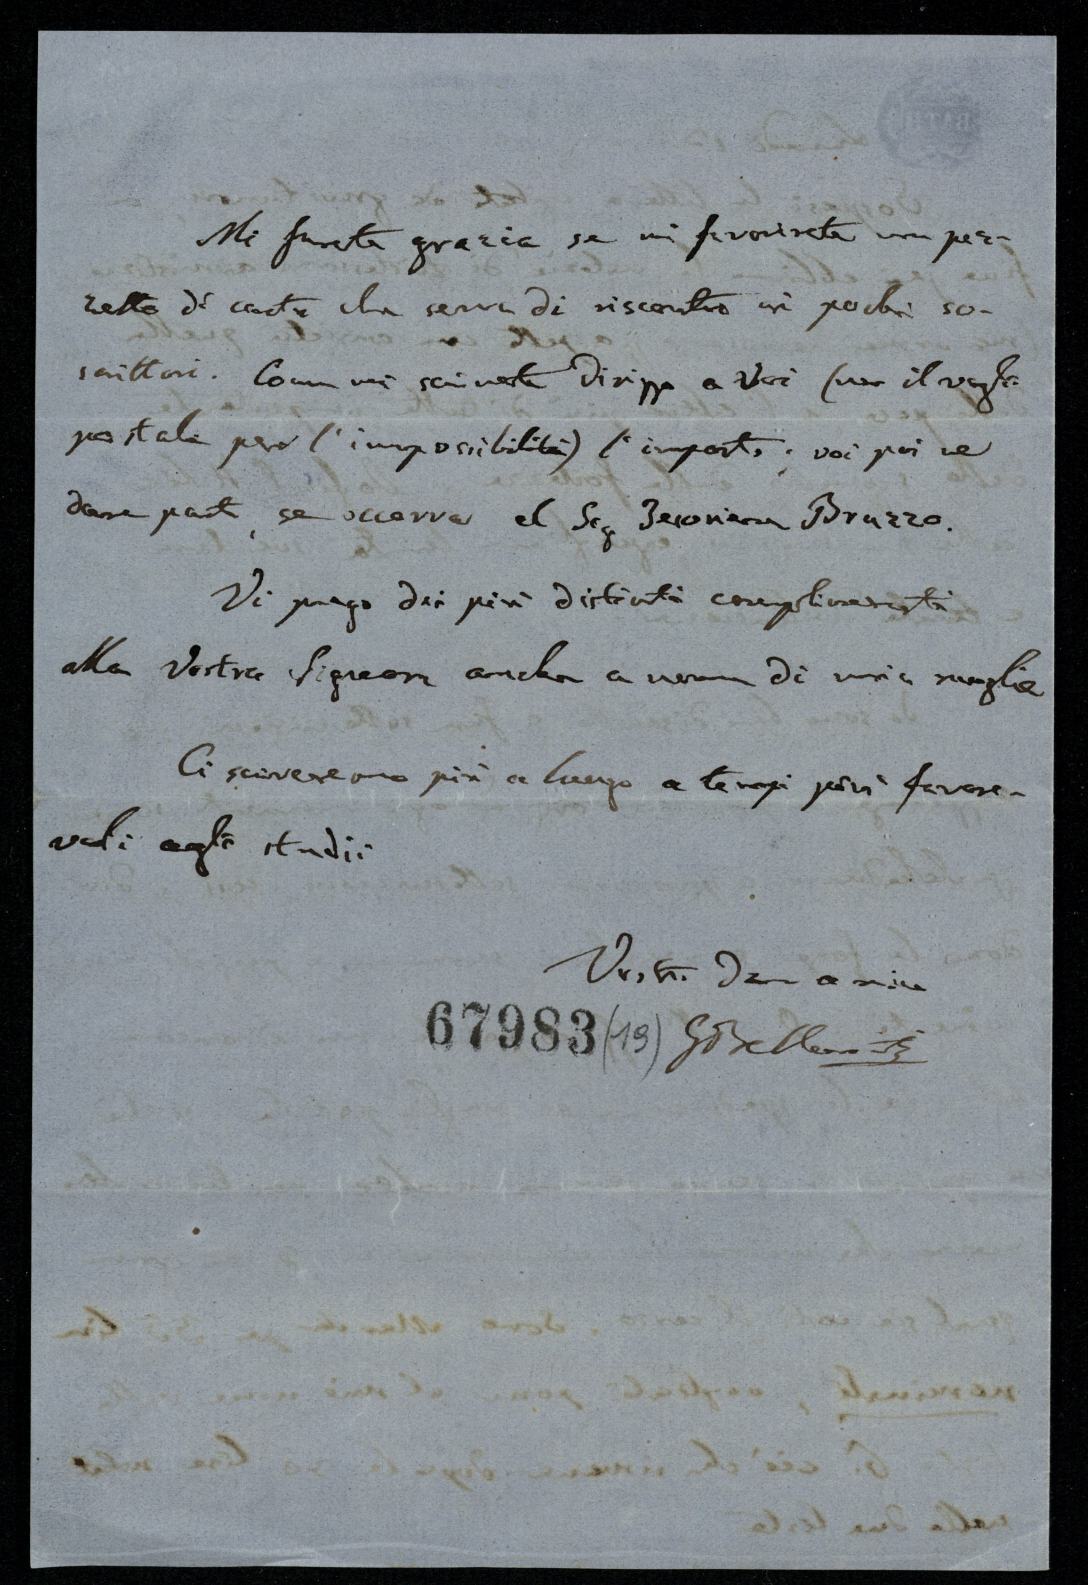 Mi farete grazia se mi favorirete un pez-
zetto di carta che serva di riscontro ai pochi so-
scrittori. Come mi scriveste dirigo a Voi (non il vaglia
postale per l'impossibilità) l'importo; voi poi ne
darete parte, se occorra al Sig Bruzzo.
Vi prego dei più distinti complimenti
alla Vostra Signora anche a nome di mia moglie
Ci scriveremo più a lungo a tempi più favore-
voli agli studii
Vostro amico
67983 (19) GBellermann